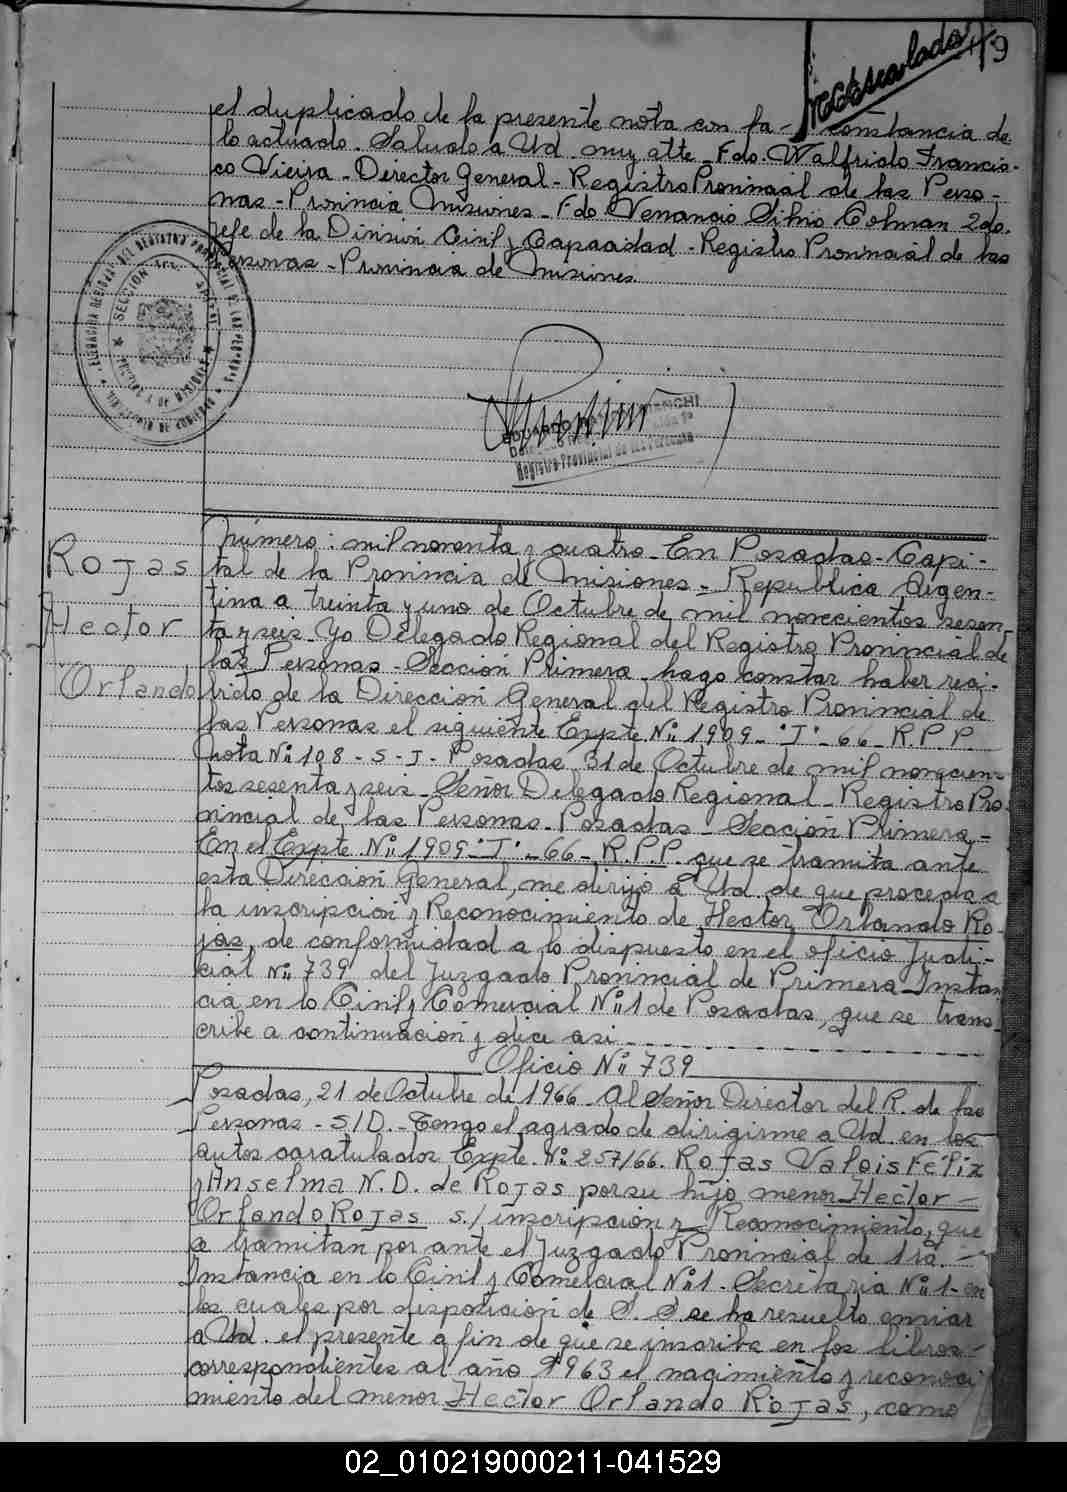 Recaratulado
79
el duplicado de la presente nota con la constancia de
lo actuado. Saludo a Ud. muy atte - Fdo. Walfrido Francis-
co Vieira - Director General - Registro Provincial de las Perso-
nas - Provincia Misiones - Fdo. Venancio Silvio Colman 2do.
jefe de la Division Civil y Capacidad - Registro Provincial de las
Personas - Provincia de Misiones.
SECCION
PROVINCIA DE MISIONES
EDUARDO
Registro Provincial de las Personas
Rojas
Hector
Orlando
Número: mil noventa y cuatro - En Posadas - Capi-
tal de la Provincia de Misiones - Republica Argen-
tina a treinta y uno de Octubre de mil novecientos sesen-
ta y seis. Yo Delegado Regional del Registro Provincial de
las Personas - Sección Primera, hago constar haber reci-
bido de la Dirección General del Registro Provincial de
las Personas el siguiente Expte. Nº 1909 - "J" - 66 - R.P.P.
Nota Nº 108 - S - J - Posadas 31 de Octubre de mil novecien-
tos sesenta y seis - Señor Delegado Regional - Registro Pro
vincial de las Personas - Posadas - Sección Primera -
En el Expte. Nº 1909 "J" - 66 - R.P.P. que se tramita ante
esta Dirección General, me dirijo a Ud. de que proceda a
la inscripción y Reconocimiento de Hector Orlando Ro-
jas, de conformidad a lo dispuesto en el oficio Judi-
cial Nº 739 del Juzgado Provincial de Primera Instan
cia en lo Civil y Comercial Nº 1 de Posadas, que se trans-
cribe a continuación y dice asi
Oficio Nº 739
Posadas, 21 de Octubre de 1966 - Al Señor Director del R. de las
Personas - S/D. - Tengo el agrado de dirigirme a Ud. en los
autos caratulados Expte. Nº 257/66. Rojas Valois Félix
y Anselma N. D. de Rojas por su hijo menor Hector -
Orlando Rojas s/ inscripción y Reconocimiento, que
se tramitan por ante el Juzgado Provincial de 1ra. -
Instancia en lo Civil y Comercial Nº 1. Secretaria Nº 1 - en
los cuales por disposición de S. S. se ha resuelto enviar
a Ud. el presente a fin de que se inscriba en los libros -
correspondientes al año 1963 el nacimiento y reconoci
miento del menor Hector Orlando Rojas, como
02_010219000211-041529